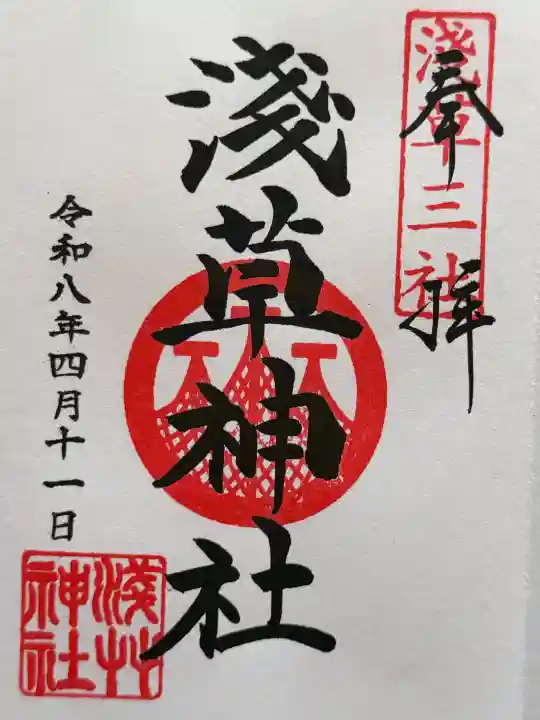 奉拝
淺草三社
淺草神社
令和八年四月十一日
淺艸神社